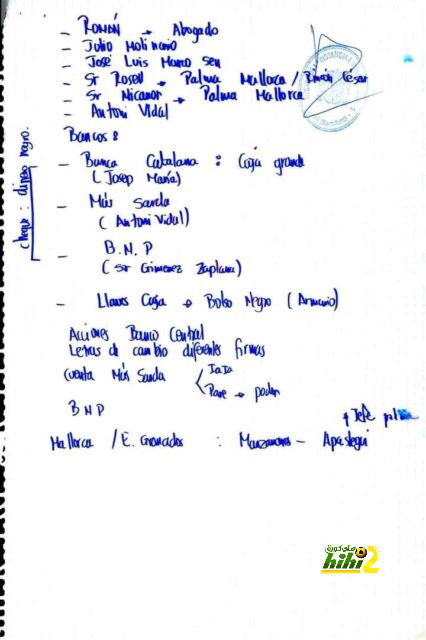 - ROMÁN → Abogado
- Julio Molinario
- José Luis Marco Seu
- Sr Rosell → Palma Mallorca / Román César
- Sr Nicanor → Palma Mallorca
- Antoni Vidal
Bancos:
- Banca Catalana : Caja grande
(Josep María)
- Más Sarda
(Antoni Vidal)
- B.N.P
(Sr Gimenez Zaplana)
- Llaves Caja → Bolso Negro (Armario)
Acciones Banco Central
Letras de cambio diferentes firmas
Cuenta Más Sarda < IaIa
Pare → poder
BNP
+ Jefe
Mallorca / E. Granados : Manzanares - Apastegui
cheque : dinero negro.
هاي كورة
hihi2